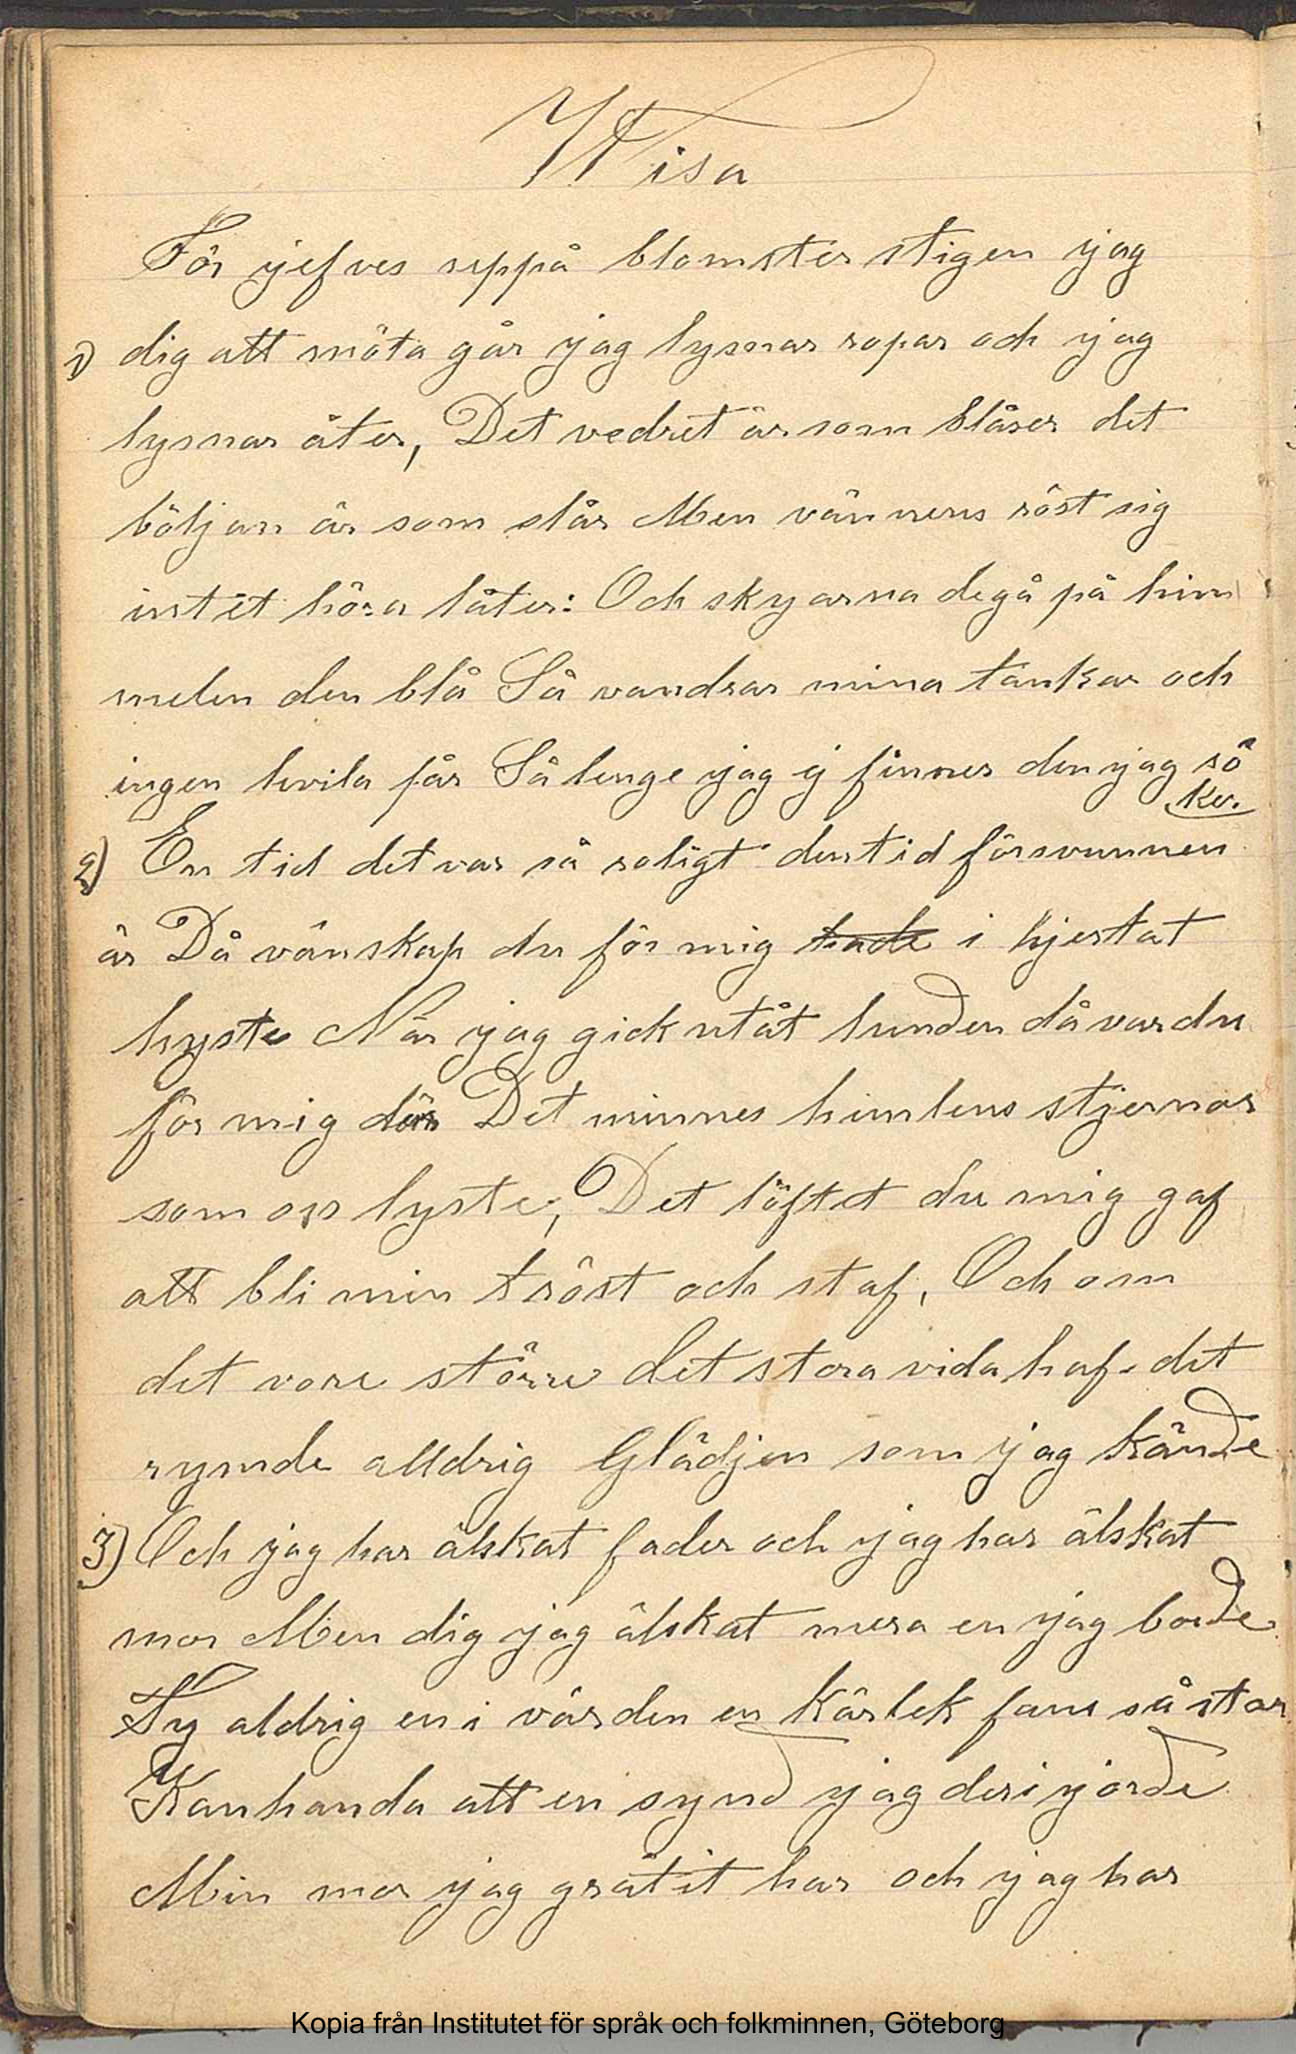 Wisa
För jefves uppå blomster stigen jag
1) dig att möta går jag lysnar ropar och jag
lysnar åter, Det vedret är som blåser det
böljan är som slår Men vännens röst sig
intet höra låter: Och skyarna de gå på him
melen den blå Så vandrar mina tankar och
ingen hvila får Så lenge jag ej finner den jag sö
ker.
2) En tid det var så roligt den tid försvunnen
är Då vänskap du för mig hade i hjertat
hyste När jag gick utåt lunden då var du
för mig där Det minnes himlens stjernor
som os lyste, Det löftet du mig gaf
att bli min tröst och staf, Och om
det vore större det stora vida haf det
rymde alldrig Glädjen som jag kände
3) Och jag har älskat fader och jag har älskat
mor Men dig jag älskat mera en jag borde
Ty aldrig en i värden en kärlek fans så stor
Kanhanda att en synd jag deri jorde
Min mor jag gråtit har och jag har
Kopia från Institutet för språk och folkminnen, Göteborg